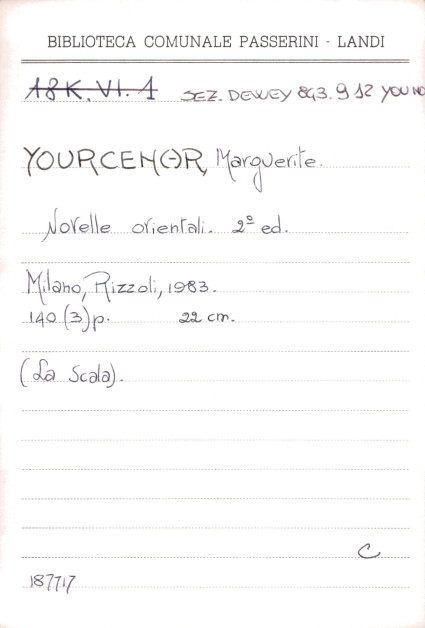 BIBLIOTECA COMUNALE PASSERINI - LANDI
A8K. VI. 1 SEZ. DEWEY 843.912 YOU NO
YOURCENAR, Marguerite.
Novelle orientali. 2º ed.
Milano, Rizzoli, 1983.
140 (3) p. 22 cm.
(La Scala).
C
187717